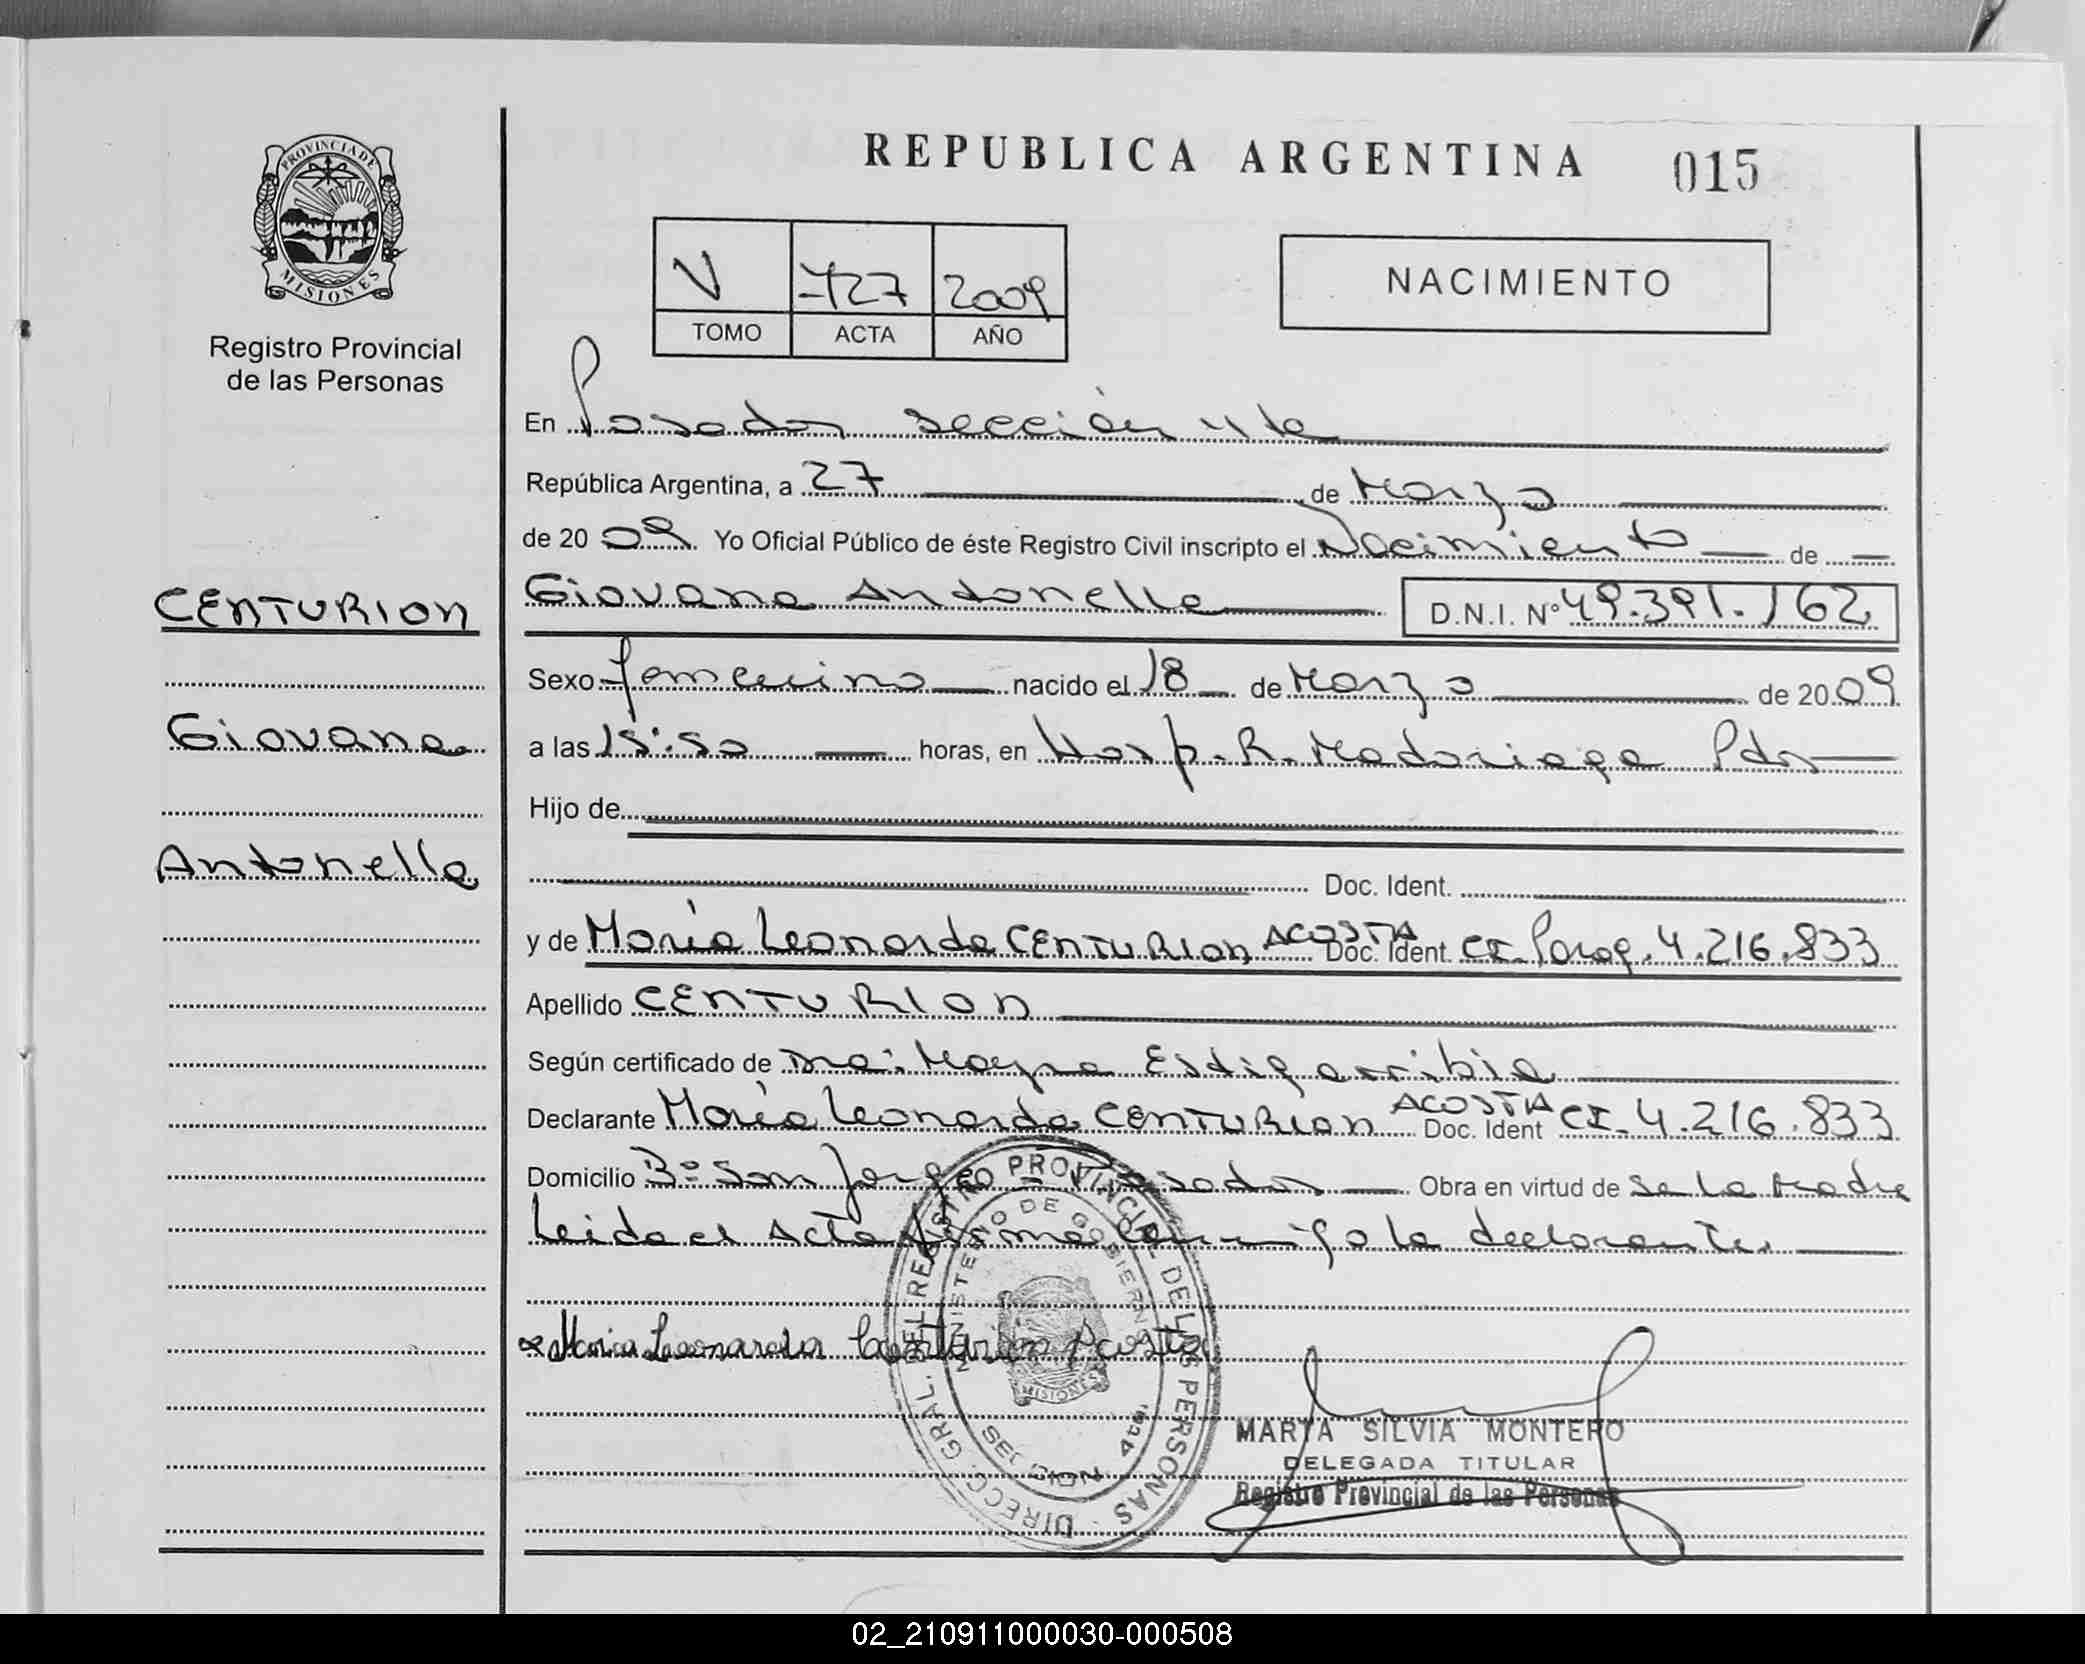 REPUBLICA ARGENTINA 015
PROVINCIA DE
MISIONES
Registro Provincial
de las Personas
V 727 2009
TOMO ACTA AÑO
NACIMIENTO
En Posadas sección 4ta
República Argentina, a 27 de Marzo
de 20 09 Yo Oficial Público de éste Registro Civil inscripto el Nacimiento de
CENTURION
Giovana
Antonella
Giovana Antonella D.N.I. N° 49.391.162
Sexo femenino nacido el 18 de Marzo de 20 09
a las 15:50 horas, en Hosp. R. Madariaga Pdas
Hijo de
Doc. Ident.
y de María Leonarda CENTURION ACOSTA Doc. Ident. CI. Parag. 4.216.833
Apellido CENTURION
Según certificado de Dra: Mayra Estigarribia
Declarante María Leonarda CENTURION ACOSTA Doc. Ident CI. 4.216.833
Domicilio B° San Jorge - Posadas Obra en virtud de se la Madre
Leida el Acta firma conmigo la declarante.
Maria Leonarda Centurion Acosta
DIRECC. GRAL. DEL REGISTRO PROVINCIAL DE LAS PERSONAS
MINISTERIO DE GOBIERNO
MISIONES
SECCION 4ta
MARTA SILVIA MONTERO
DELEGADA TITULAR
Registro Provincial de las Personas
02_210911000030-000508